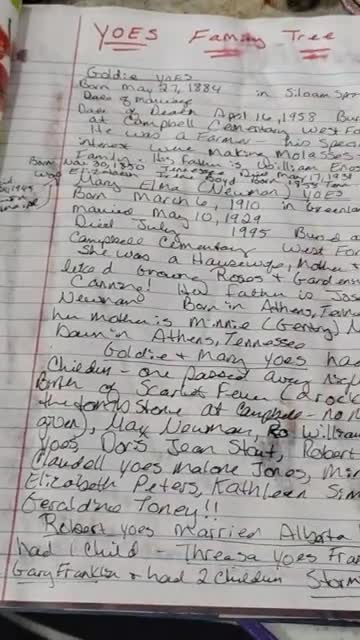 YOES Family Tree
Goldie YOES
Born May 27, 1884 in Siloam Spr
Date of Marriage
Date of Death April 16, 1958 Buri
at Campbell Cementary West F
He was a Farmer - his Spec
interest were Making Molasses
Family. His Father is William Enos
Born Nov 30, 1850 Tennessee, Died May 17, 1931
was Elizabeth Boyd Born 1855 Tenn
Mary Elma (Newman) YOES
Born March 6, 1910 in Greenlan
Married May 10, 1929
Died July 1995 Buried a
Campbell Cementary West For
She was a Housewife, Mother &
liked Growing Roses & Gardening
Canning! Her Father is Jos
Newman Born in Athens, Tenne
her mother is Minnie (Gentry) N
Born in Athens, Tennessee
Goldie & Mary Yoes had
Children - one passed away
Birth of Scarlet Fever (2 rock
the tomb Stone at Campbell - no
given), Max Newman, Ro William
Yoes, Doris Jean Stout, Robert
Claudell Yoes Malone Jones, Min
Elizabeth Peters, Kathleen Sim
Geraldine Toney!!
Robert Yoes Married Alberta
had 1 Child - Threasa Yoes Fran
Gary Franklin & had 2 Children Storm